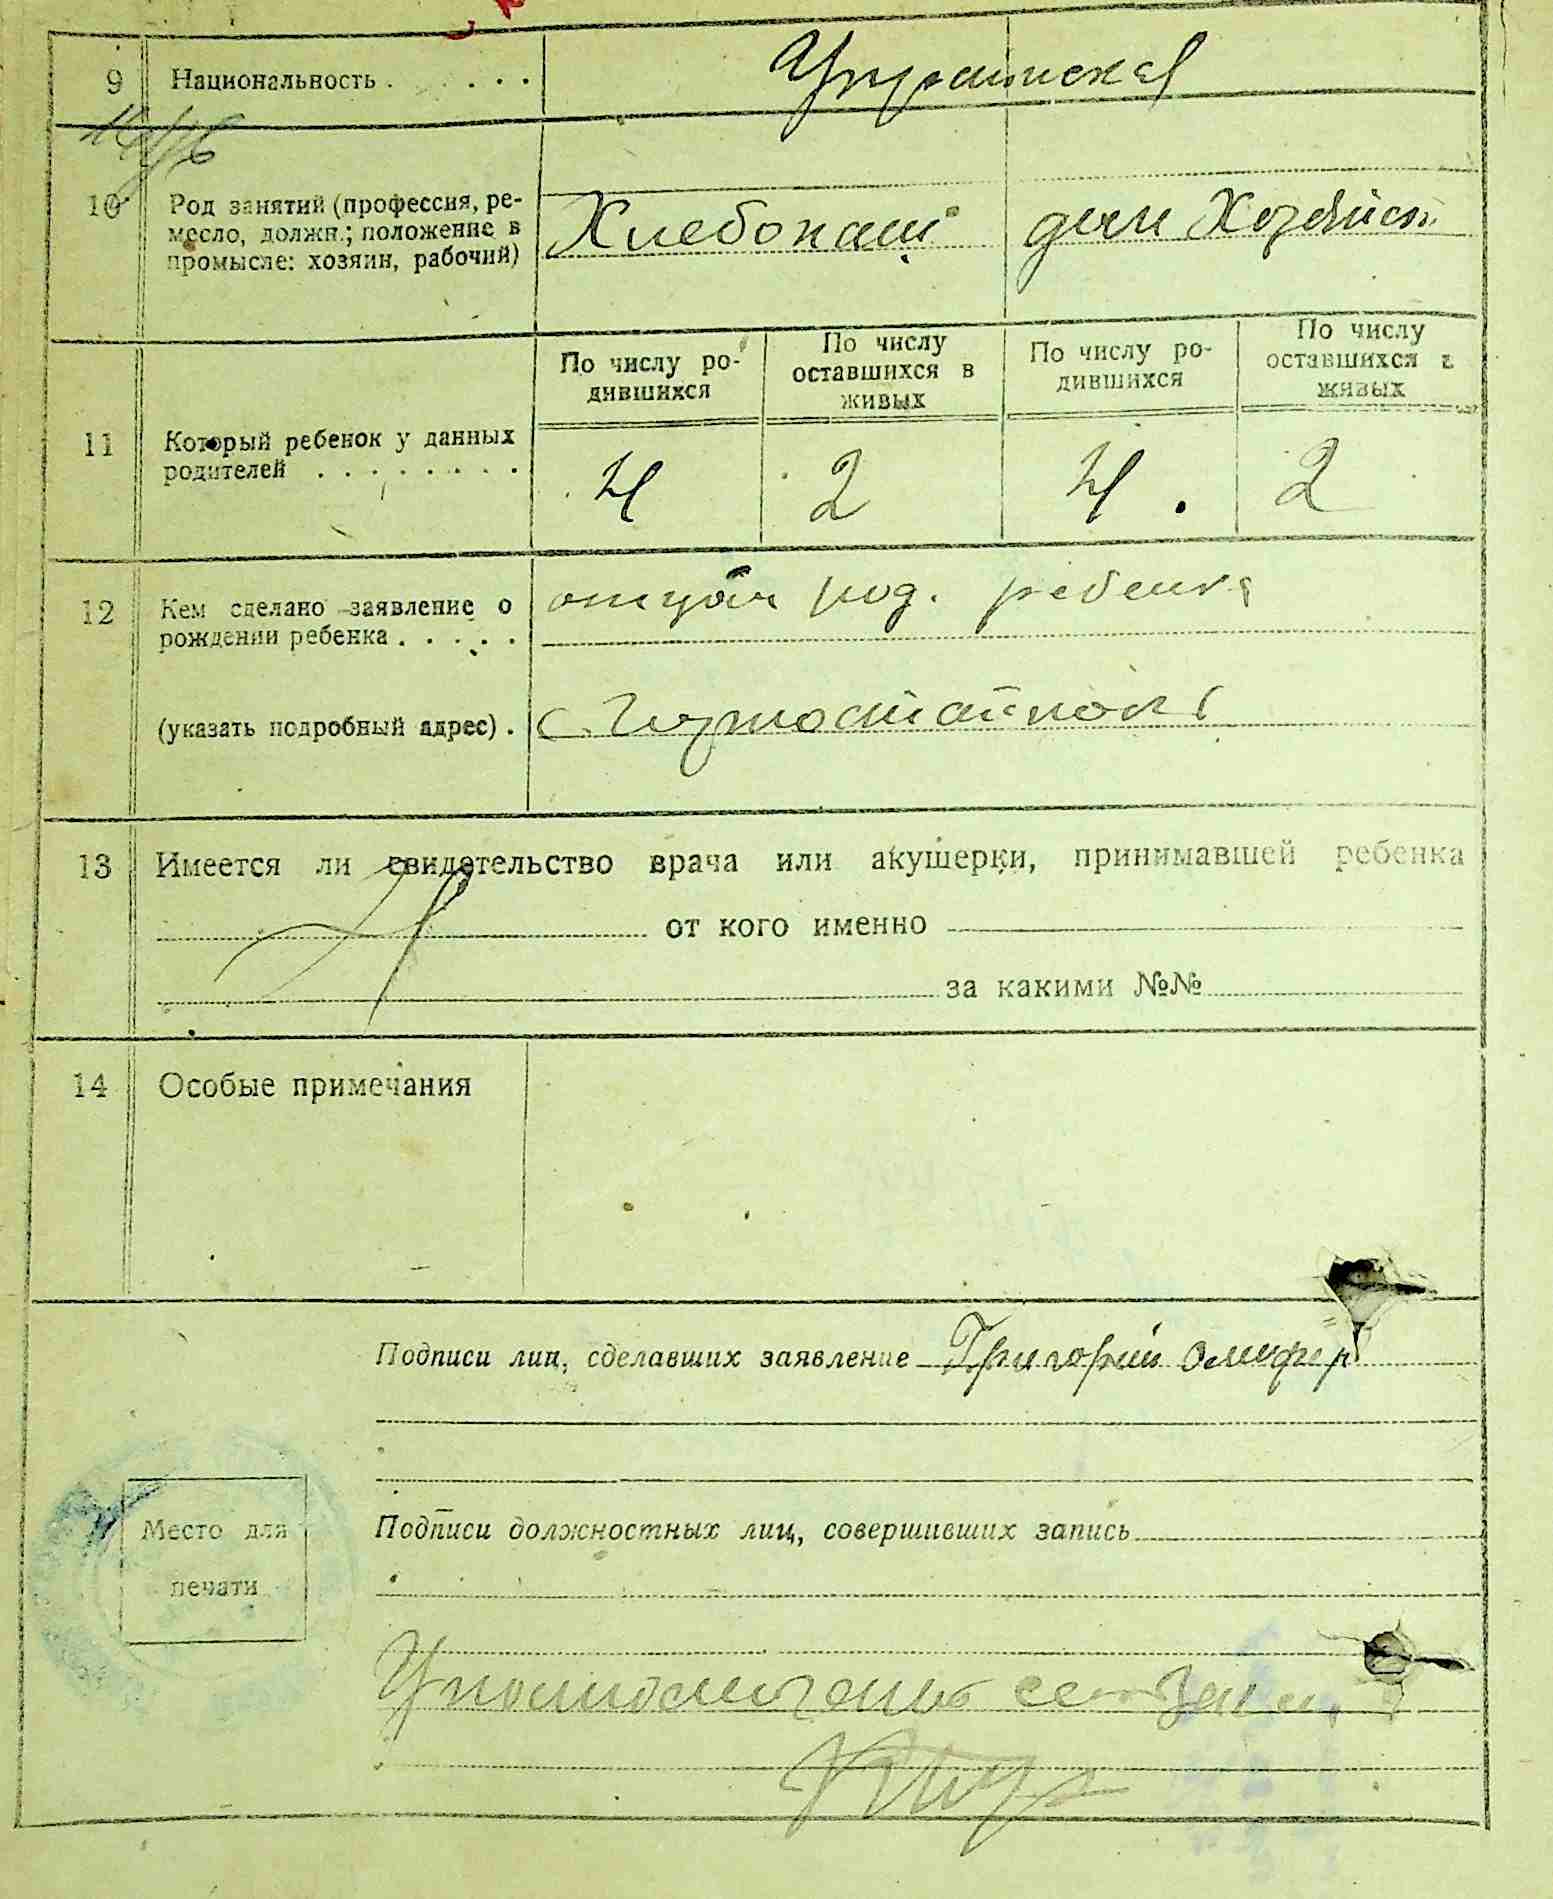 9 Национальность . . . . . Украинская
10 Род занятий (профессия, ре-
месло, должн.; положение в
промысле: хозяин, рабочий)
Хлебопаш дом Хозяйст
По числу ро-
дившихся
По числу
оставшихся в
живых
По числу ро-
дившихся
По числу
оставшихся в
живых
11 Который ребенок у данных
родителей . . . . . . . .
4 2 4. 2
12 Кем сделано заявление о
рождении ребенка . . . . .
отцом ребенка
(указать подробный адрес) .
с.
13 Имеется ли свидетельство врача или акушерки, принимавшей ребенка
от кого именно
за какими №№
14 Особые примечания
Подписи лиц, сделавших заявление Григорий
Место для
печати
Подписи должностных лиц, совершивших запись